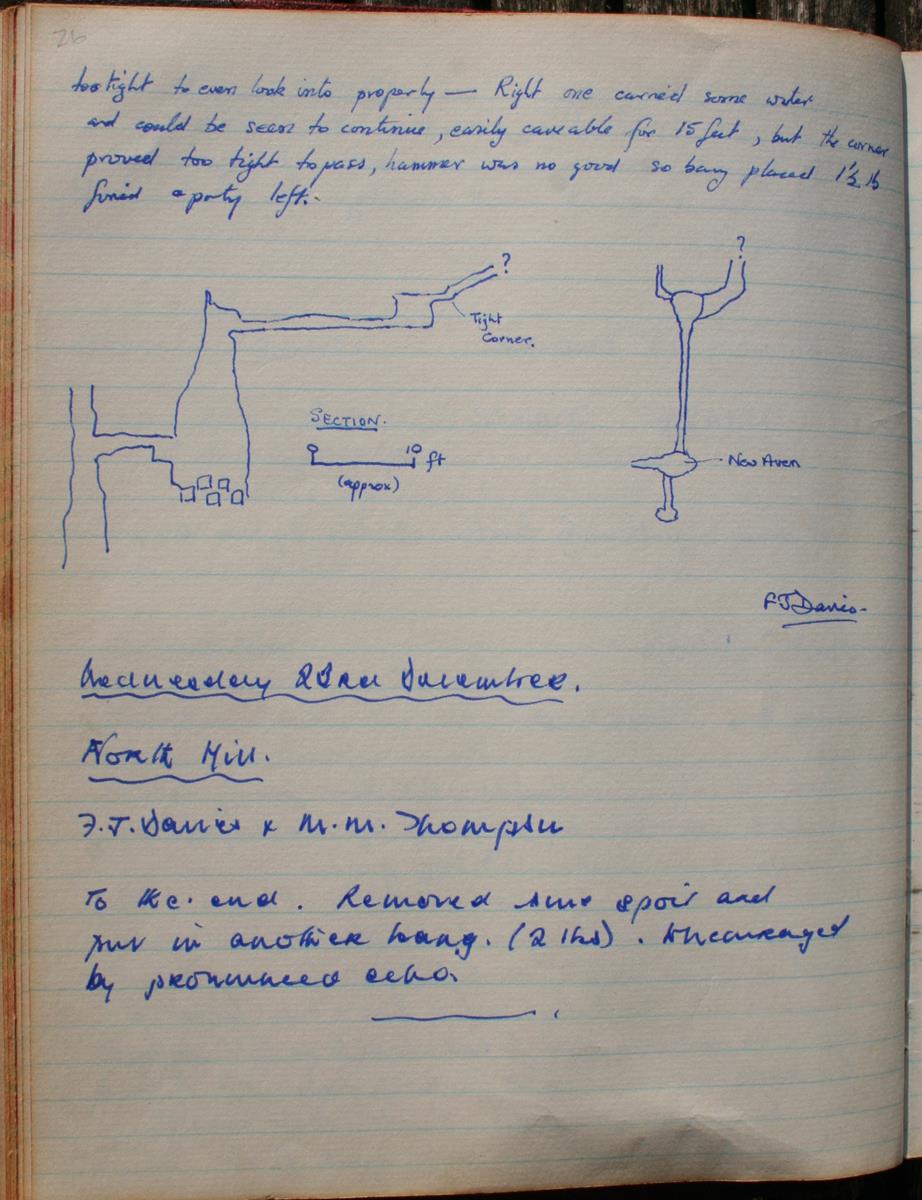 26
too tight to even look into properly — Right one carried some water
and could be seen to continue, easily caveable for 15 feet, but the corner
proved too tight to pass, hammer was no good so bang placed 1½ lb
fused & party left.
?
?
Tight
Corner.
SECTION.
0 10 ft
(approx)
New Aven
F J Davies
Wednesday 23rd December.
North Hill.
F.J. Davies & M.M. Thompson
To the end. Removed some spoil and
put in another bang. (2 lbs). Encouraged
by pronounced echo.